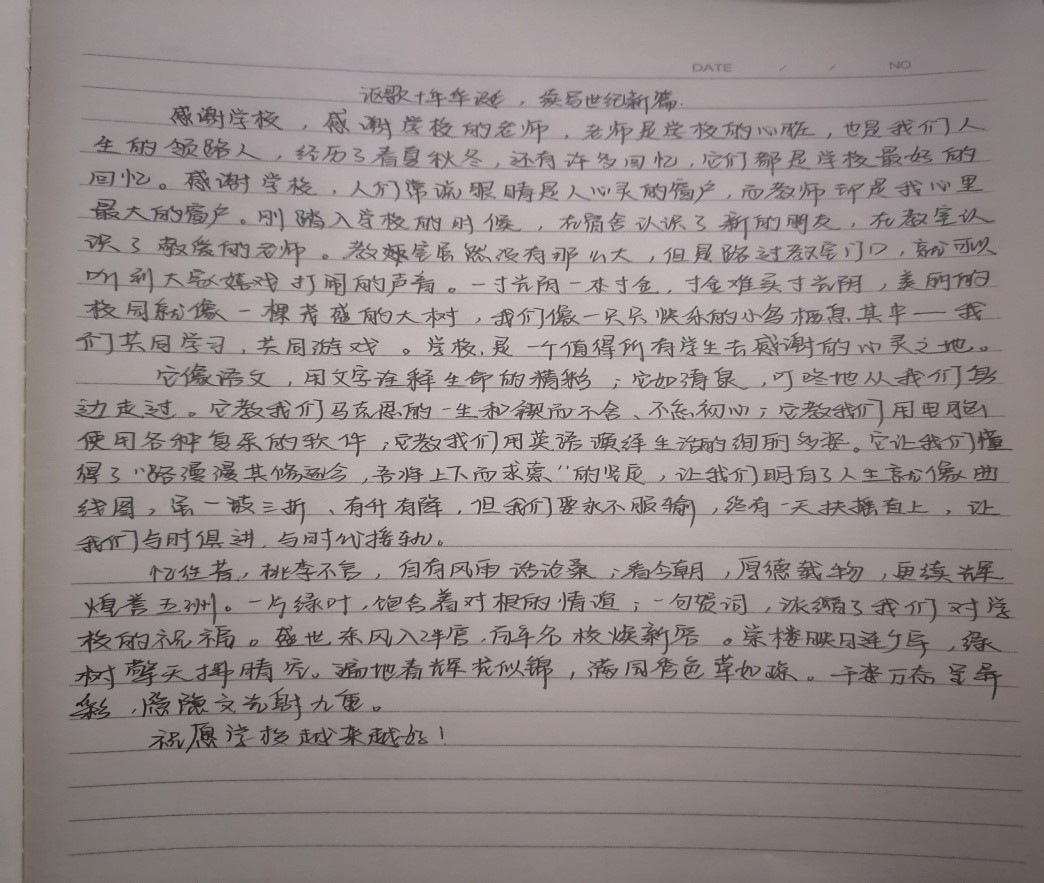 DATE / / NO
讴歌十年华诞，续写世纪新篇.
感谢学校，感谢学校的老师，老师是学校的心脏，也是我们人
生的领路人，经历了春夏秋冬，还有许多回忆，它们都是学校最好的
回忆。感谢学校，人们常说眼睛是人心灵的窗户，而教师却是我心里
最大的窗户。刚踏入学校的时候，在宿舍认识了新的朋友，在教室认
识了敬爱的老师。教室虽然没有那么大，但是路过教室门口，就可以
听到大家嬉戏打闹的声音。一寸光阴一本寸金，寸金难买寸光阴，美丽的
校园就像一棵茂盛的大树，我们像一只只快乐的小鸟栖息其中——我
们共同学习，共同游戏。学校，是一个值得所有学生去感谢的心灵之地。
它像语文，用文字诠释生命的精彩；它如清泉，叮咚地从我们身
边走过。它教我们马克思的一生和锲而不舍、不忘初心；它教我们用电脑
使用各种复杂的软件；它教我们用英语演绎生活的绚丽多姿。它让我们懂
得了“路漫漫其修远兮，吾将上下而求索”的坚定，让我们明白了人生就像曲
线图，虽一波三折、有升有降，但我们要永不服输，终有一天扶摇直上，让
我们与时俱进，与时代接轨。
忆往昔，桃李不言，自有风雨话沧桑；看今朝，厚德载物，更续辉
煌誉五洲。一片绿叶，饱含着对根的情谊；一句贺词，浓缩了我们对学
校的祝福。盛世东风入泮宫，百年名校焕新容。崇楼映日连，绿
树擎天拂晴空。遍地春辉花似锦，满园秀色草如。千姿万态呈异
彩，隐隐文光射九重。
祝愿学校越来越好！